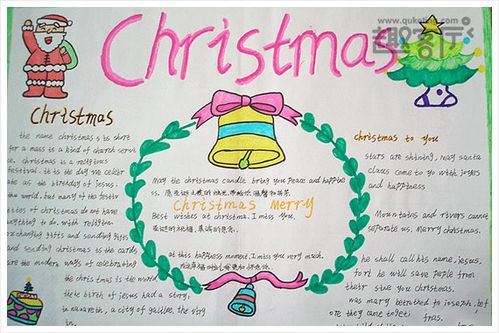 Christmas
www.quke
趣客厅
Christmas
the name christmas is short
for a mass is a kind of church serv
ce. christmas is a religious
festival. it is the day we celebr
ate as the birthday of jesus.
he world, but many of the festiv
ities of christmas do not have
anything to do with religion.
exchanging gifts and sending gifts
and sending christmas is the cards
are the modern ways of celebrating
the christmas is the world
the birth of jesus had a story,
in nazareth, a city of galilee. the virg
May the christmas candle bring you peace and happine
ss.
Christmas Merry
Best wishes at christma. I miss you.
圣诞的祝福,真诚的思念.
at this happiness moment. I miss you very much.
christmas to you
stars are shining, may santa
claus come to go with joyous
and happiness
Mountains and rivers cannot
saturate us. Merry christmas.
he shall call his name, jesus,
for he will save people from
their sins you christmas.
was marry betrothed to joseph, bef
ore they came together.